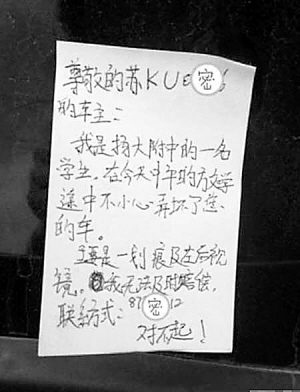 尊敬的苏KUE密6
的车主：
我是扬大附中的一名
学生，在今天中午的放学
途中不小心弄坏了您
的车。
主要是一划痕及左后视
镜。我无法及时赔偿，
联络方式：87密12
对不起！